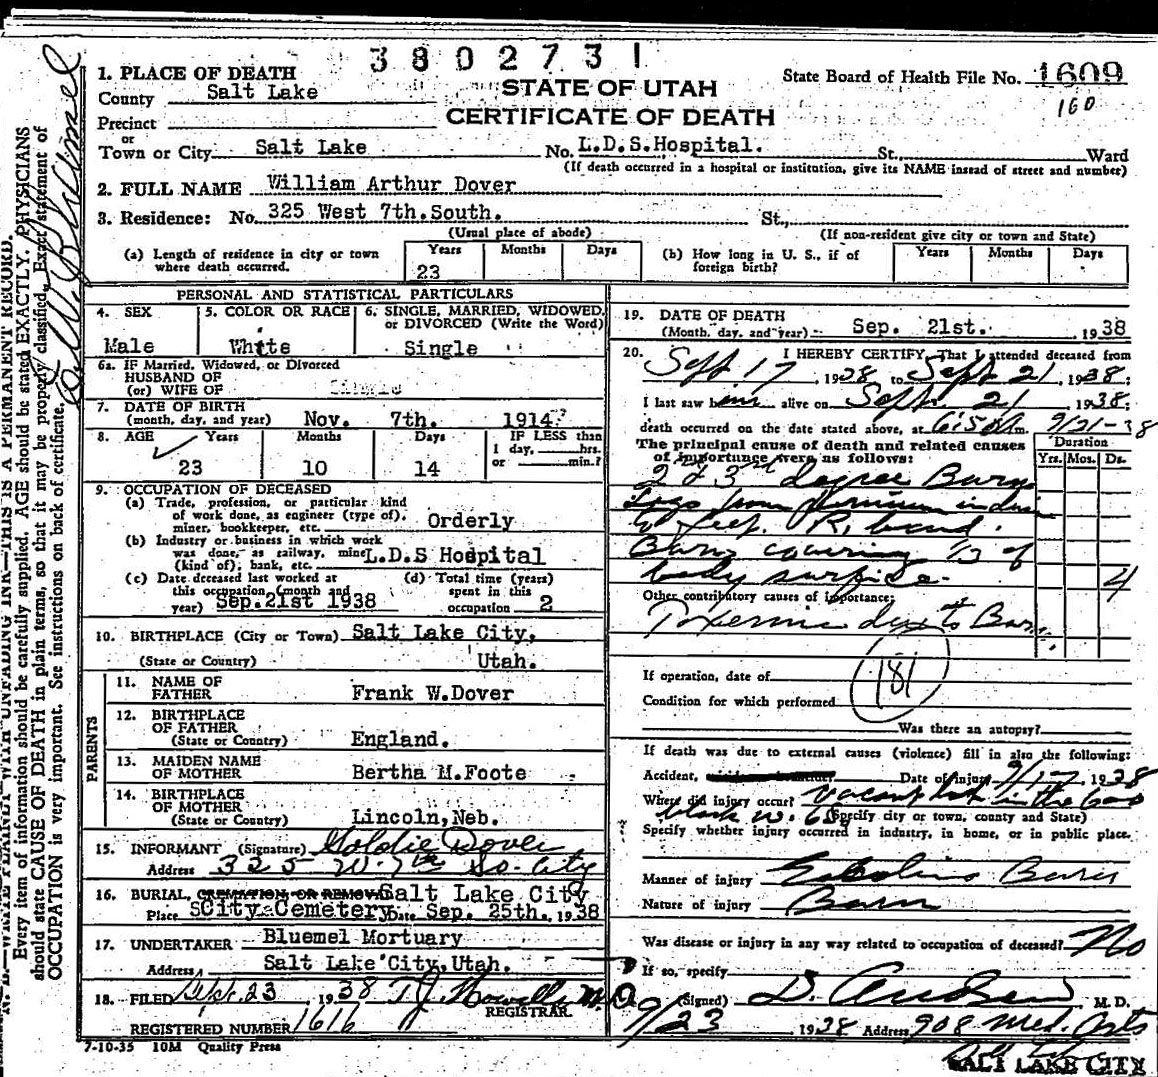 3802731
1. PLACE OF DEATH
County Salt Lake
STATE OF UTAH
CERTIFICATE OF DEATH
State Board of Health File No. 1609
160
Precinct
or
Town or City Salt Lake No. L.D.S.Hospital. St., Ward
(If death occurred in a hospital or institution, give its NAME instead of street and number)
2. FULL NAME William Arthur Dover
3. Residence: No. 325 West 7th.South. St.,
(Usual place of abode) (If non-resident give city or town and State)
(a) Length of residence in city or town where death occurred. Years 23 Months Days
(b) How long in U. S., if of foreign birth? Years Months Days
PERSONAL AND STATISTICAL PARTICULARS
4. SEX Male
5. COLOR OR RACE White
6. SINGLE, MARRIED, WIDOWED, or DIVORCED (Write the Word) Single
6a. IF Married, Widowed, or Divorced
HUSBAND OF
(or) WIFE OF Single
7. DATE OF BIRTH
(month, day, and year) Nov. 7th. 1914?
8. AGE Years 23 Months 10 Days 14
IF LESS than
1 day, hrs.
or min.?
9. OCCUPATION OF DECEASED
(a) Trade, profession, or particular kind
of work done, as engineer (type of),
miner, bookkeeper, etc. Orderly
(b) Industry or business in which work
was done, as railway, mine
(kind of); bank, etc. L.D.S Hospital
(c) Date deceased last worked at
this occupation (month and
year) Sep.21st 1938
(d) Total time (years)
spent in this
occupation 2
10. BIRTHPLACE (City or Town) Salt Lake City,
(State or Country) Utah.
PARENTS
11. NAME OF
FATHER Frank W.Dover
12. BIRTHPLACE
OF FATHER
(State or Country) England.
13. MAIDEN NAME
OF MOTHER Bertha M.Foote
14. BIRTHPLACE
OF MOTHER
(State or Country) Lincoln,Neb.
15. INFORMANT (Signature) Goldie Dover
Address 325 W. 7th So. City
16. BURIAL, CREMATION OR REMOVAL Salt Lake City
Place City Cemetery Date Sep. 25th., 1938
17. UNDERTAKER Bluemel Mortuary
Address Salt Lake City,Utah.
18. FILED Sept. 23 1938 T J Howells M.D
REGISTRAR
REGISTERED NUMBER 1616
7-10-35 10M Quality Press
19. DATE OF DEATH
(Month, day, and year) Sep. 21st. 1938
20. I HEREBY CERTIFY, That I attended deceased from
Sept. 17, 1938 to Sept 21, 1938;
I last saw him alive on Sept. 21 1938;
death occurred on the date stated above, at m. 9/21-38
The principal cause of death and related causes
of importance were as follows:
Duration
Yrs. Mos. Ds.
2nd & 3rd degree Burns
Legs from
to feet. R. hand.
Burns covering 1/3 of
body surface. 4
Other contributory causes of importance:
Toxemia due to Burns
181
If operation, date of
Condition for which performed
Was there an autopsy?
If death was due to external causes (violence) fill in also the following:
Accident, Date of injury 9/17, 1938
Where did injury occur? Vacant lot in the 600
block W. 6 So
(Specify city or town, county and State)
Specify whether injury occurred in industry, in home, or in public place.
Manner of injury Gasoline Burn
Nature of injury Burn
Was disease or injury in any way related to occupation of deceased? No
If so, specify
(Signed) M. D.
9/23 1938 Address 908 Med. Arts
SALT LAKE CITY
N. B.—WRITE PLAINLY, WITH UNFADING INK—THIS IS A PERMANENT RECORD.
Every item of information should be carefully supplied. AGE should be stated EXACTLY, PHYSICIANS
should state CAUSE OF DEATH in plain terms, so that it may be properly classified. Exact statement of
OCCUPATION is very important. See instructions on back of certificate.